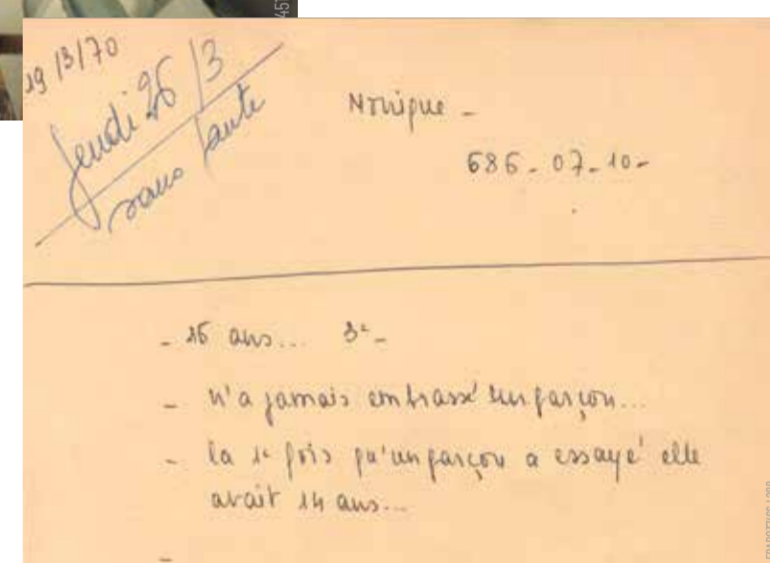 19/3/70
Jeudi 26/3
sans faute
Monique -
686-07-10-
- 16 ans... 3e-
- n'a jamais embrassé un garçon...
- la 1e fois qu'un garçon a essayé elle
avait 14 ans...
-